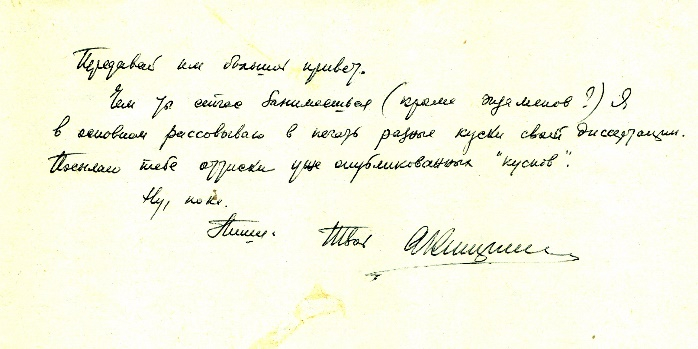 Передавай им большой привет.
Чем ты сейчас занимаешься (кроме экзаменов?) Я
в основном рассовываю в печать разные куски своей диссертации.
Посылаю тебе оттиски уже опубликованных "кусков".
Ну, пока.
Пиши. Твой